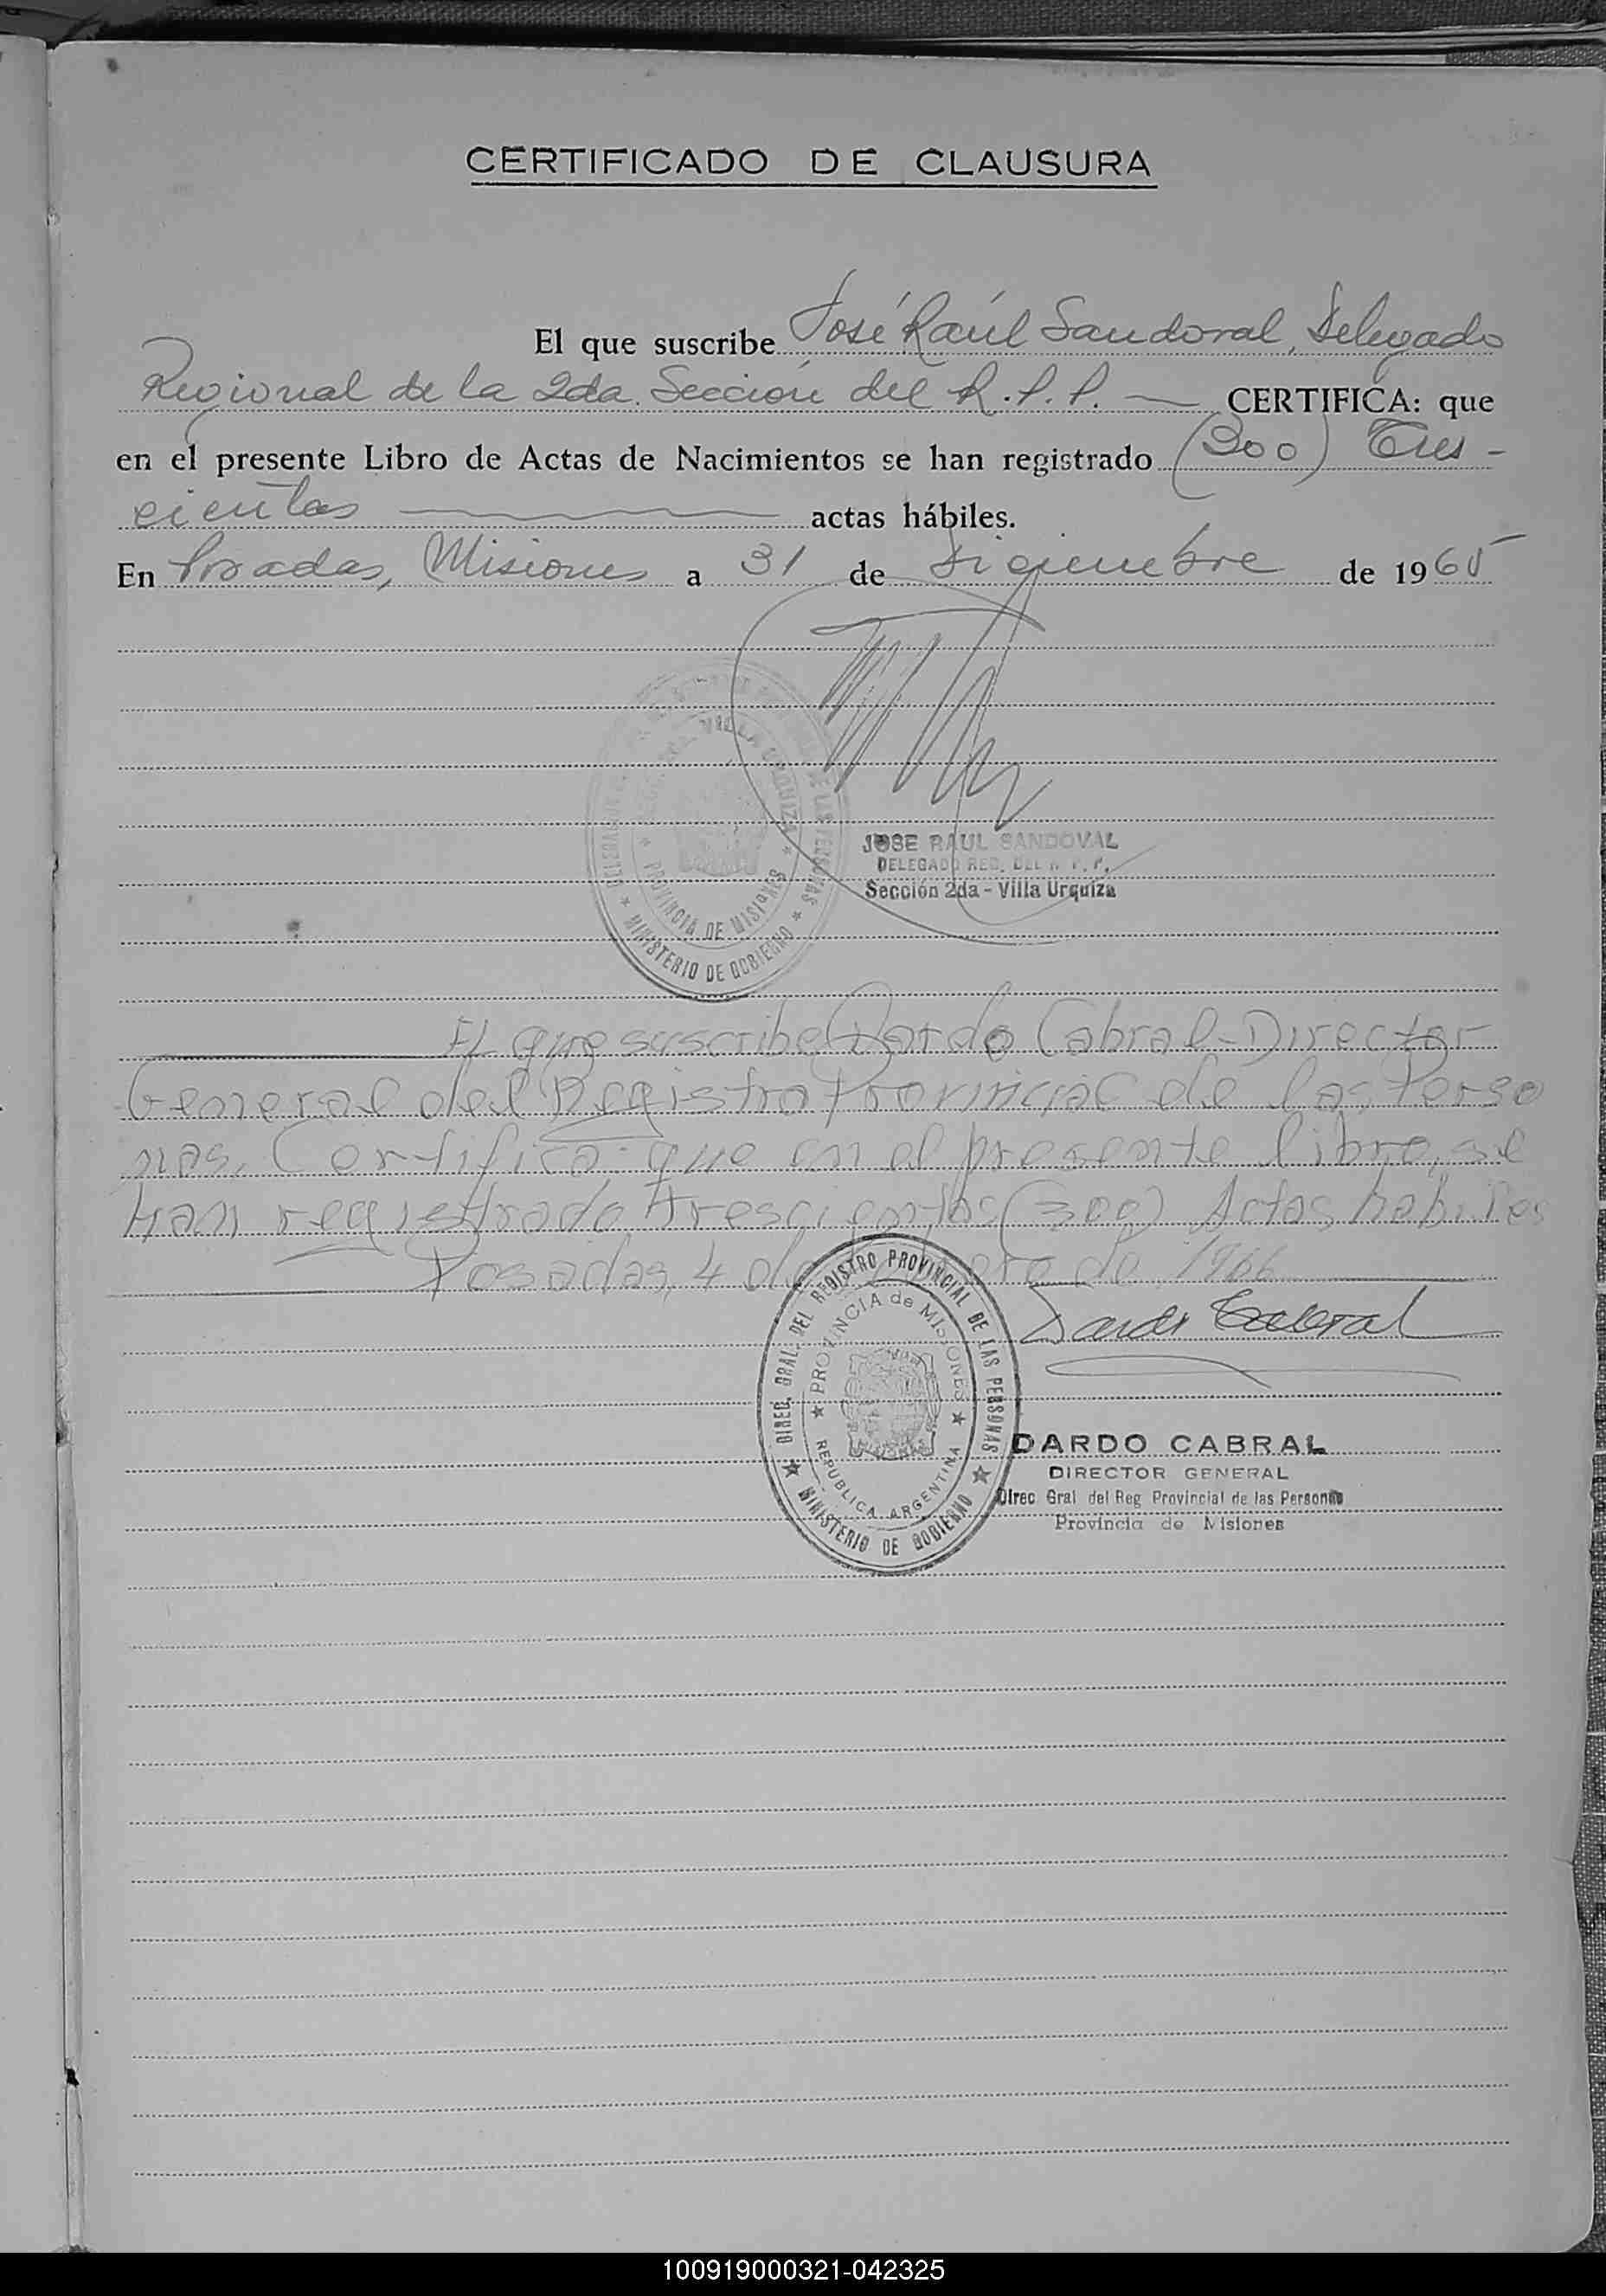 CERTIFICADO DE CLAUSURA
El que suscribe José Raúl Sandoval, Delegado
Regional de la 2da. Sección del R.P.P. — CERTIFICA: que
en el presente Libro de Actas de Nacimientos se han registrado (300) Tres-
cientas — actas hábiles.
En Posadas, Misiones a 31 de Diciembre de 1965
VILLA URQUIZA
DE LAS PERSONAS
★ PROVINCIA DE MISIONES ★
★ MINISTERIO DE GOBIERNO ★
JOSE RAUL SANDOVAL
DELEGADO REG. DEL R. P. P.
Sección 2da - Villa Urquiza
El que suscribe Dardo Cabral-Director
General del Registro Provincial de las Perso
nas, Certifica: que en el presente libro, se
han registrado trescientos (300) Actas habiles
Posadas, 4 de de 1966
Dardo Cabral
DIREC. GRAL. DEL REGISTRO PROVINCIAL DE LAS PERSONAS
★ PROVINCIA de MISIONES ★
REPUBLICA ARGENTINA
★ MINISTERIO DE GOBIERNO ★
DARDO CABRAL
DIRECTOR GENERAL
Direc Gral del Reg Provincial de las Personas
Provincia de Misiones
100919000321-042325